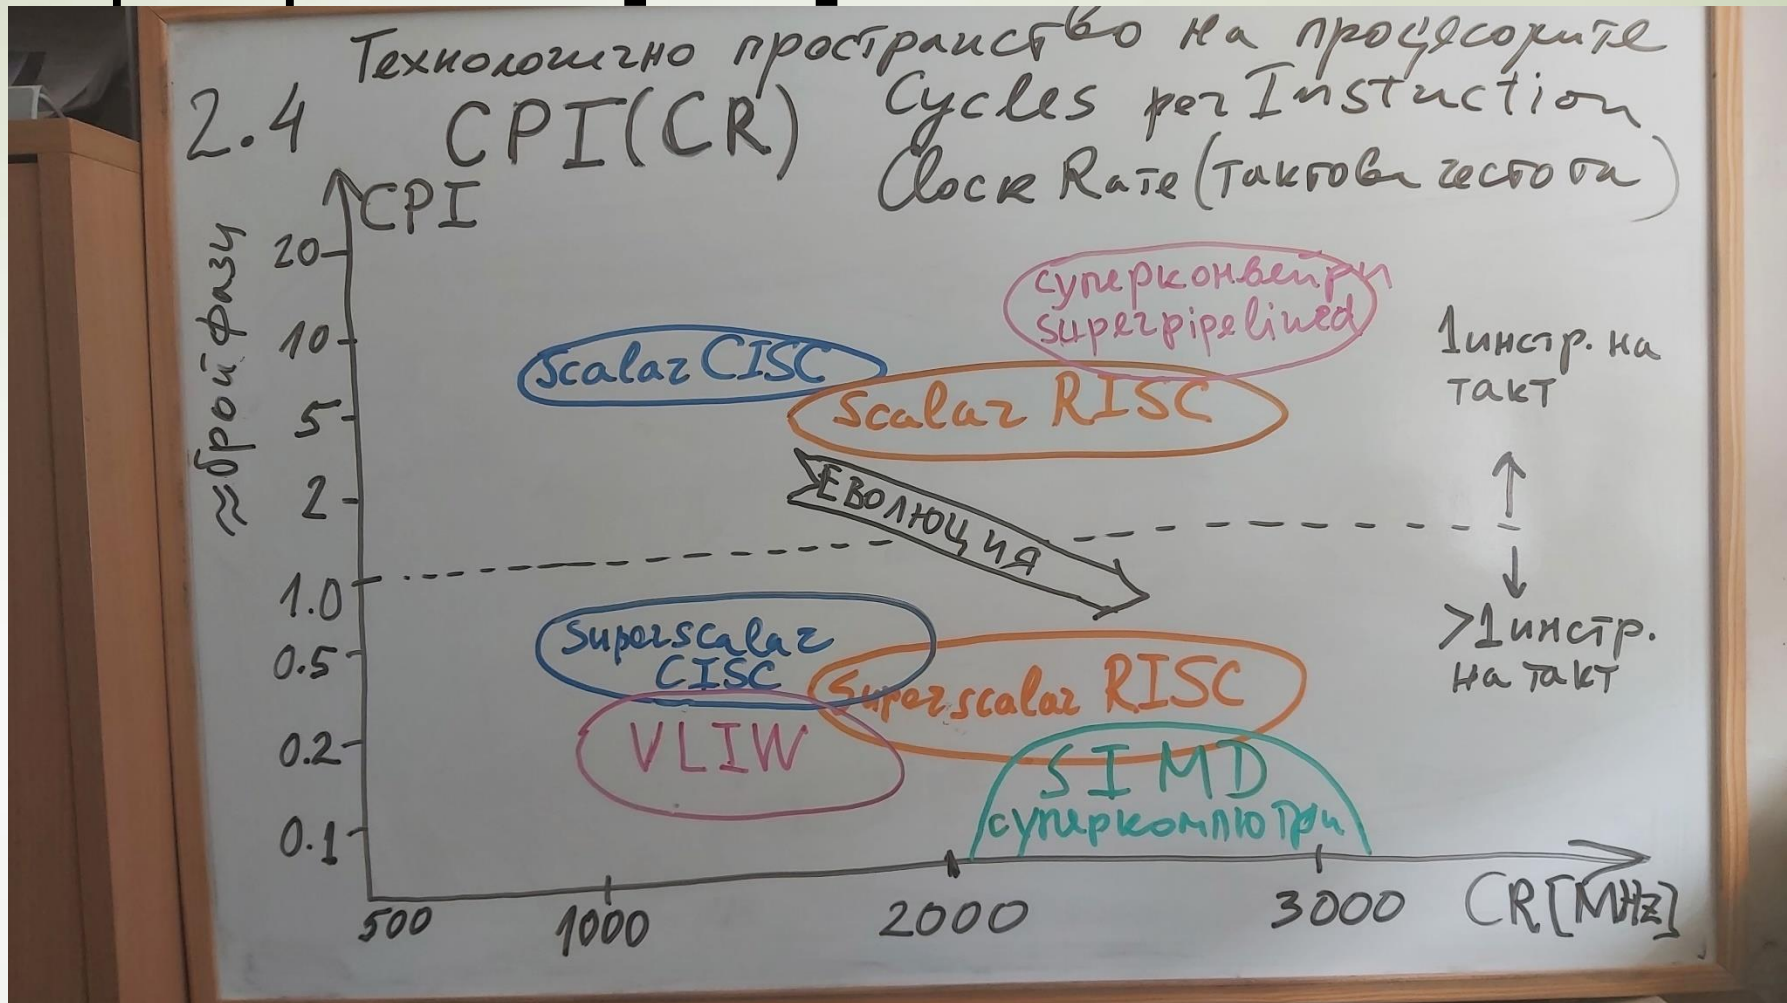 Технологично пространство на процесорите
2.4 CPI(CR) Cycles per Instuction
Clock Rate (тактова честота)
CPI
≈брой фази
20
10
5
2
1.0
0.5
0.2
0.1
суперконвейри
superpipelined
Scalar CISC
Scalar RISC
1 инстр. на
такт
ЕВОЛЮЦИЯ
>1 инстр.
на такт
Superscalar
CISC
Superscalar RISC
VLIW
SIMD
суперкомпютри
500
1000
2000
3000
CR[MHz]